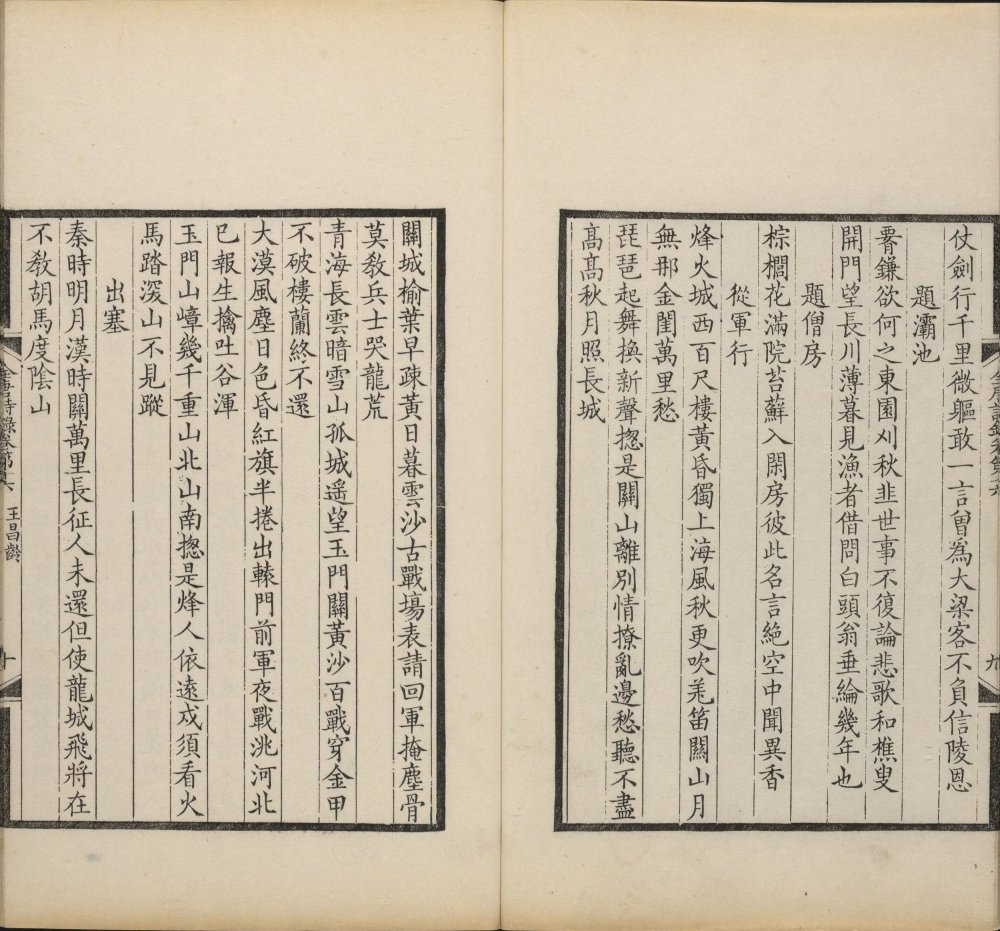 仗劍行千里微軀敢一言曾爲大梁客不負信陵恩
題灞池
腰鎌欲何之東園刈秋韭世事不復論悲歌和樵叟
開門望長川薄暮見漁者借問白頭翁垂綸幾年也
題僧房
椶櫚花滿院苔蘚入閑房彼此名言絶空中聞異香
從軍行
烽火城西百尺樓黃昏獨上海風秋更吹羌笛關山月
無那金閨萬里愁
琵琶起舞換新聲揔是關山離別情撩亂邊愁聽不盡
髙髙秋月照長城
九
關城榆葉早疎黃日暮雲沙古戰塲表請回軍掩塵骨
莫敎兵士哭龍荒
青海長雲暗雪山孤城遥望玉門關黃沙百戰穿金甲
不破樓蘭終不還
大漠風塵日色昏紅旗半捲出轅門前軍夜戰洮河北
已報生擒吐谷渾
玉門山嶂幾千重山北山南揔是烽人依遠戍須看火
馬踏深山不見蹤
出塞
秦時明月漢時關萬里長征人未還但使龍城飛將在
不敎胡馬度陰山
王昌齡
十